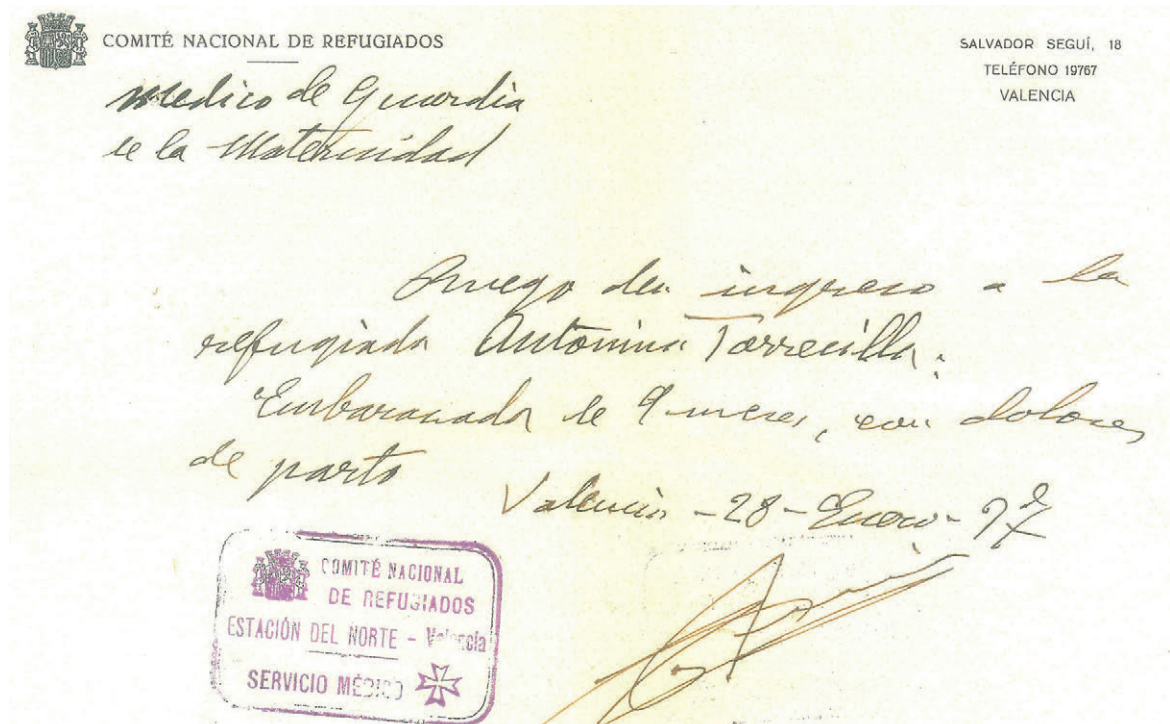 COMITÉ NACIONAL DE REFUGIADOS
SALVADOR SEGUÍ, 18
TELÉFONO 19767
VALENCIA
Medico de Guardia
de la Maternidad
Ruego den ingreso a la
refugiada Antonina Torrecilla.
Embarazada de 9 meses, con dolores
de parto
Valencia - 28 - Enero - 37
COMITÉ NACIONAL
DE REFUGIADOS
ESTACIÓN DEL NORTE - Valencia
SERVICIO MÉDICO